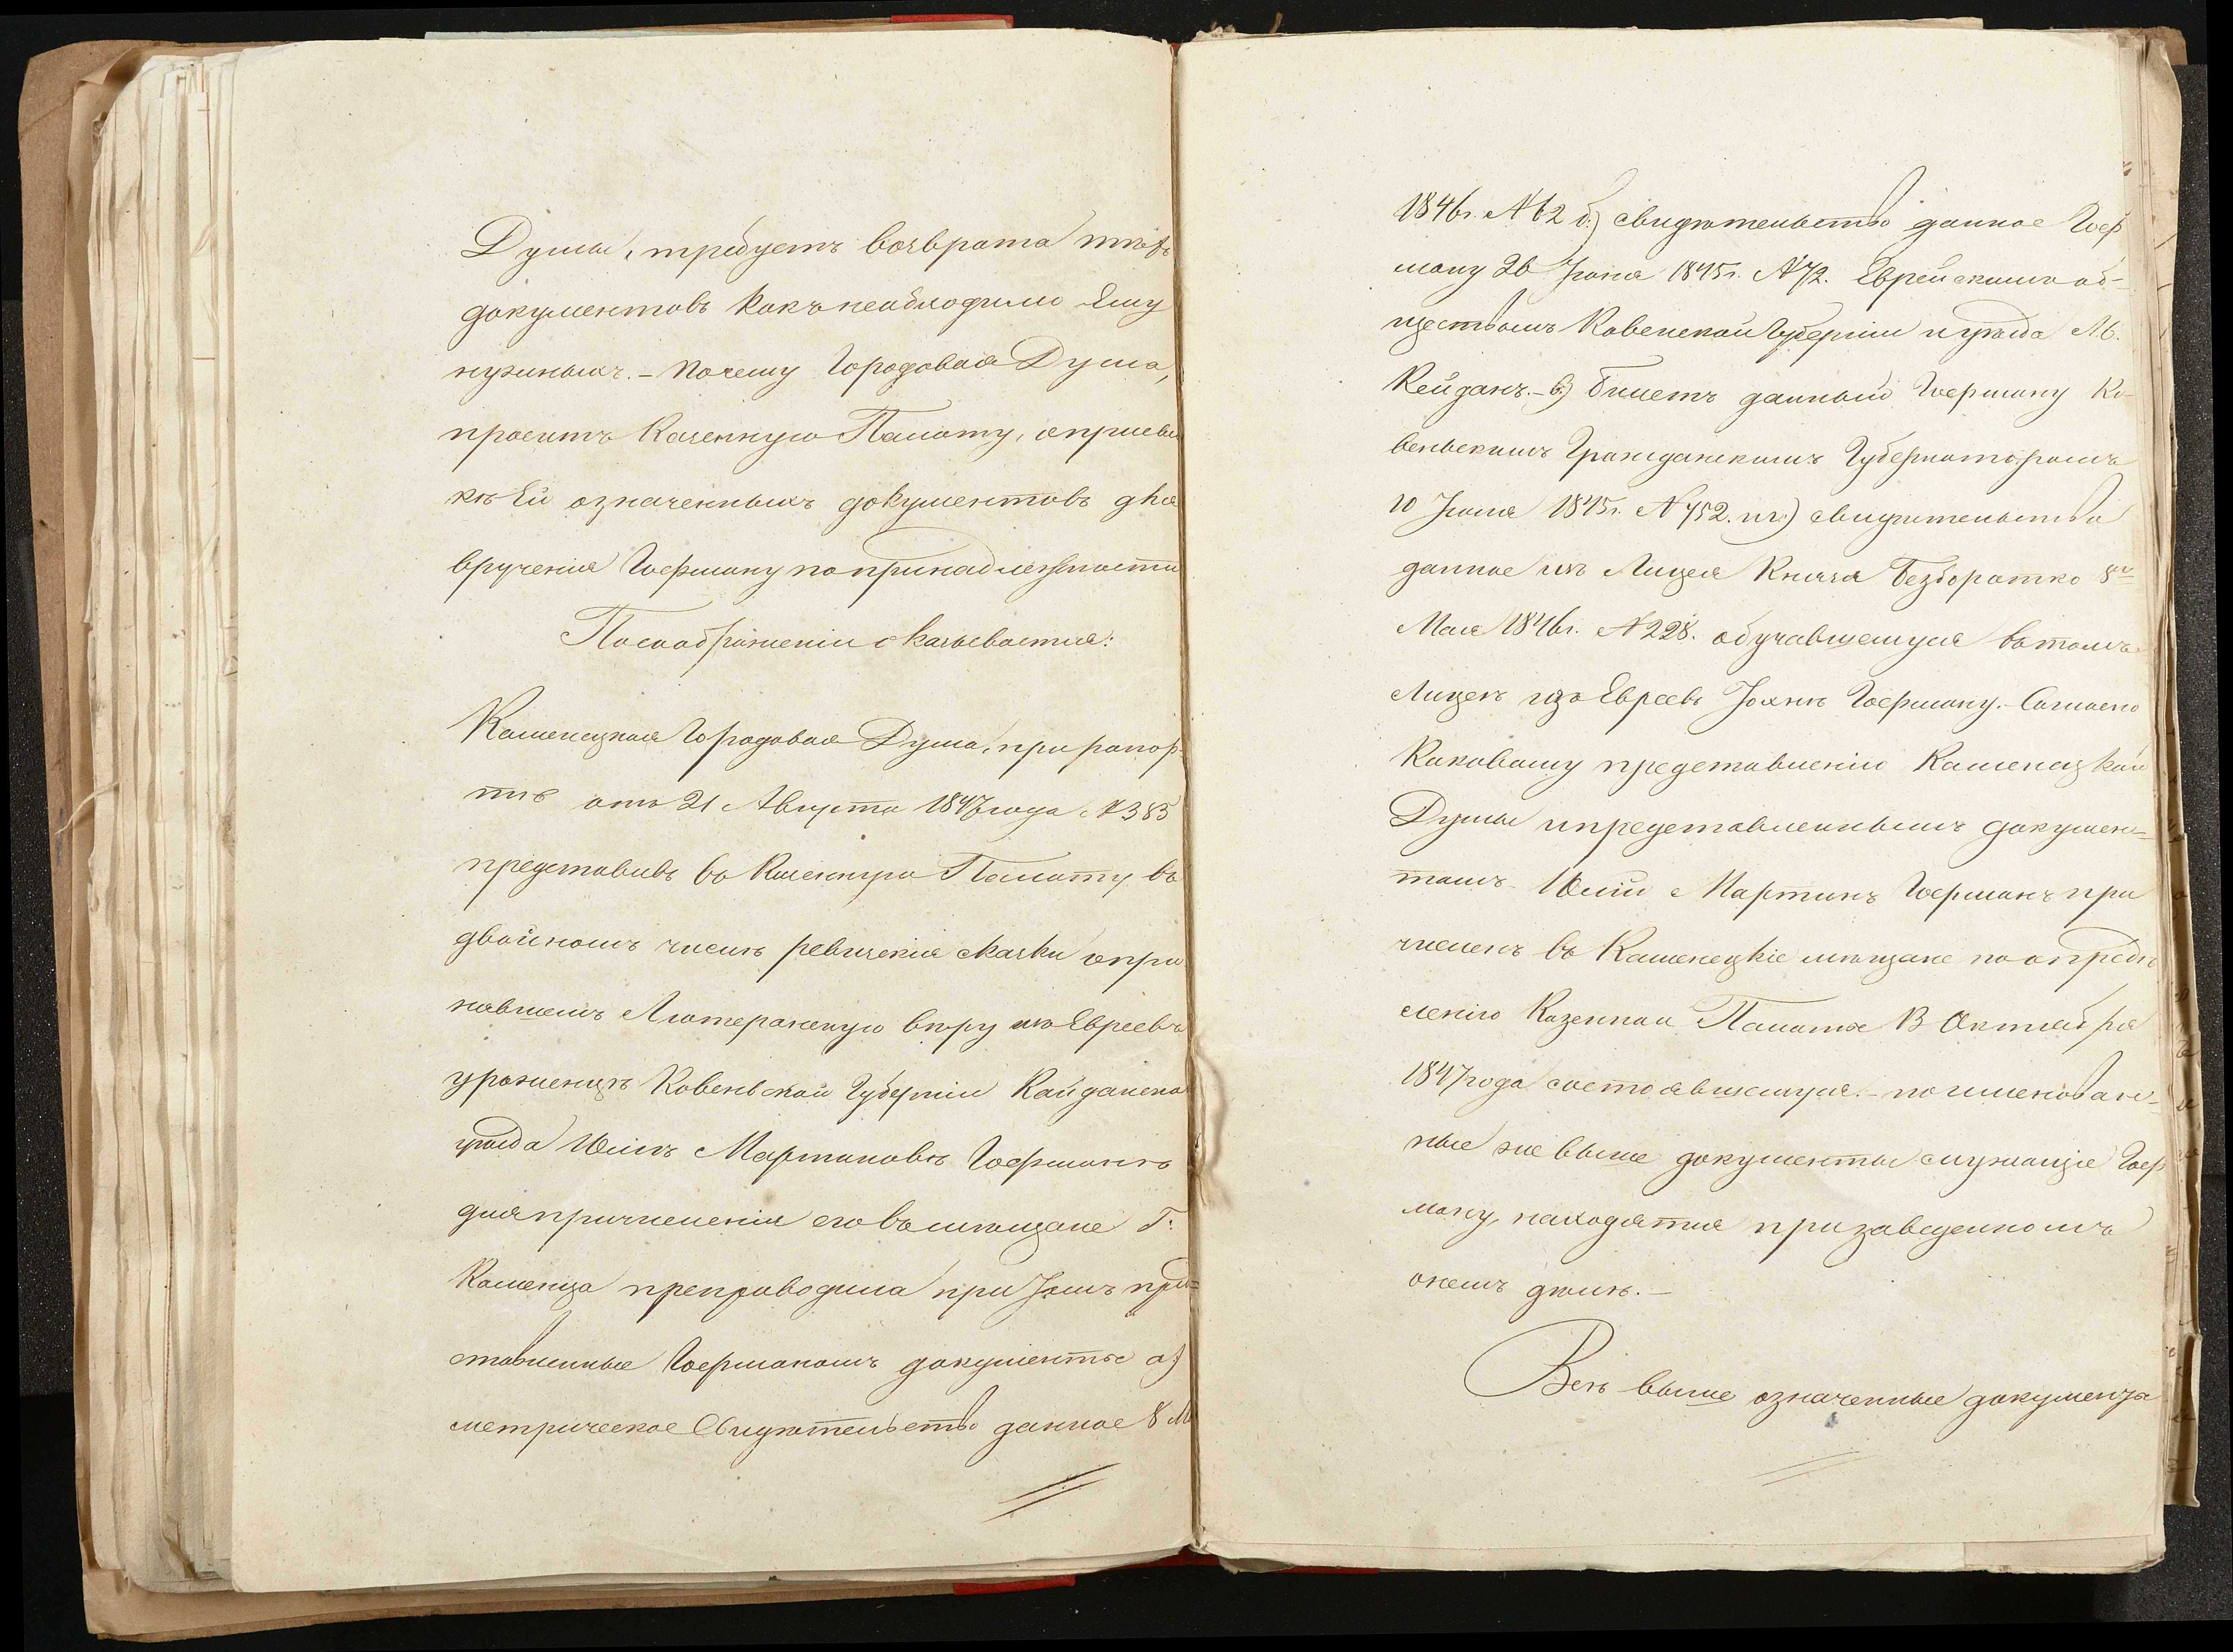 Думы, требуетъ возврата тѣхъ
документовъ какъ необходимо Ему
нужныхъ. – Почему Городовая Дума,
проситъ Казенную Палату, о присыл
кѣ Ей означенныхъ документовъ для
врученія Гофману по принадлежности
По соображеніи оказывается:
Каменецкая Городовая Дума, при рапор
тѣ отъ 21 Августа 1847 года № 385
представивъ въ Казенную Палату въ
двойномъ числѣ ревизскія сказки о при
нявшемъ Лютеранскую вѣру изъ Евреевъ
уроженцѣ Ковенской Губерніи Кайданска
уѣзда Юлиѣ Мартиновѣ Гофманѣ
для причисленія его въ мѣщане Г.
Каменца препроводила при томъ пред=
ставленные Гофманомъ документы а)
метрическое Свидѣтельство данное 8 М
1846г. № 62 б.) свидѣтельство данное Гоф
ману 26 Іюня 1845г. № 72. Еврейскимъ об-
ществомъ Ковенской Губерніи и уѣзда М.
Кейданъ. – в) билетъ данный Гофману Ко-
веньскимъ Гражданскимъ Губернаторомъ
10 Іюля 1845г. № 752. и г.) свидѣтельства
данное изъ Лицея Князя Безборотко 8го
Мая 1846г. № 228. обучавшемуся въ томъ
Лицеѣ изъ Евреевъ Гофману. – Согласно
каковому представленію Каменецкой
Думы и представленнымъ докумен=
тамъ Юлій Мартинъ Гофманъ при
численъ въ Каменецкіе мѣщане по опредѣ
ленію Казенной Палаты 13 Октября
1847 года состоявшемуся. – поименован=
ные же выше документы служащіе Гоф
ману, находятся при заведенномъ
о немъ дѣлѣ. –
Всѣ выше означенные документы